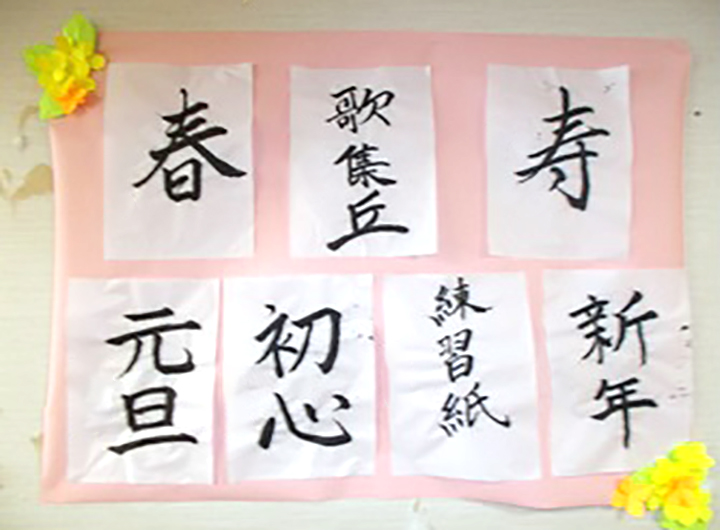 春
歌集丘
寿
元旦
初心
練習紙
新年